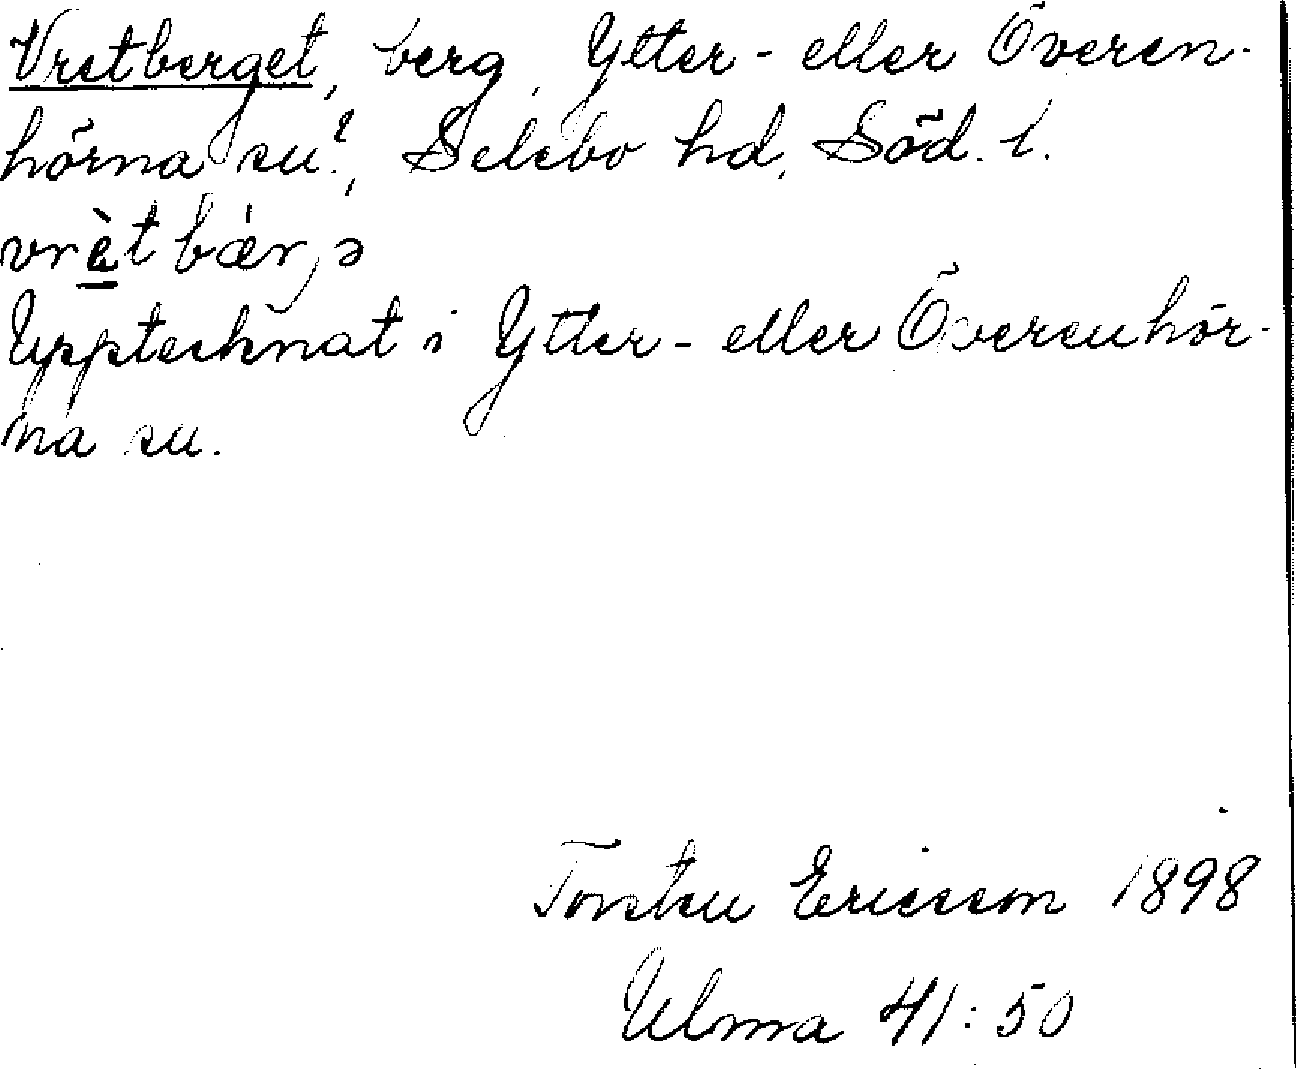 Vretberget, berg, Ytter- eller Överen-
hörna sn?, Selebo hd, Söd. l.
vrètbǽrjə
Upptecknat i Ytter- eller Överenhör-
na sn.
Torsten Ericsson 1898
Ulma 41:50